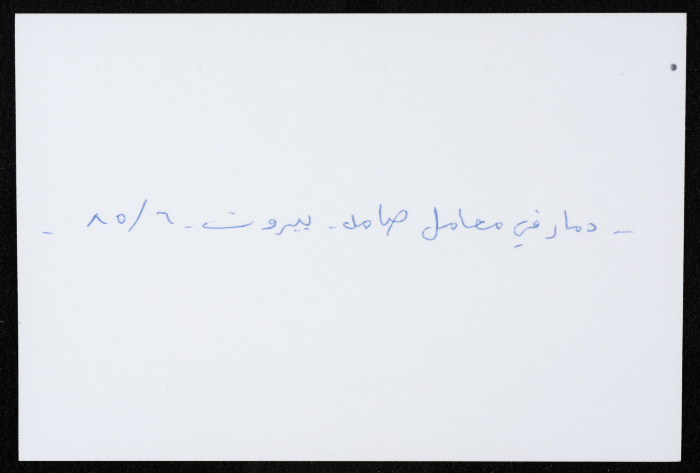 - دمار في معامل صامد - بيروت - ٦/٨٥ -